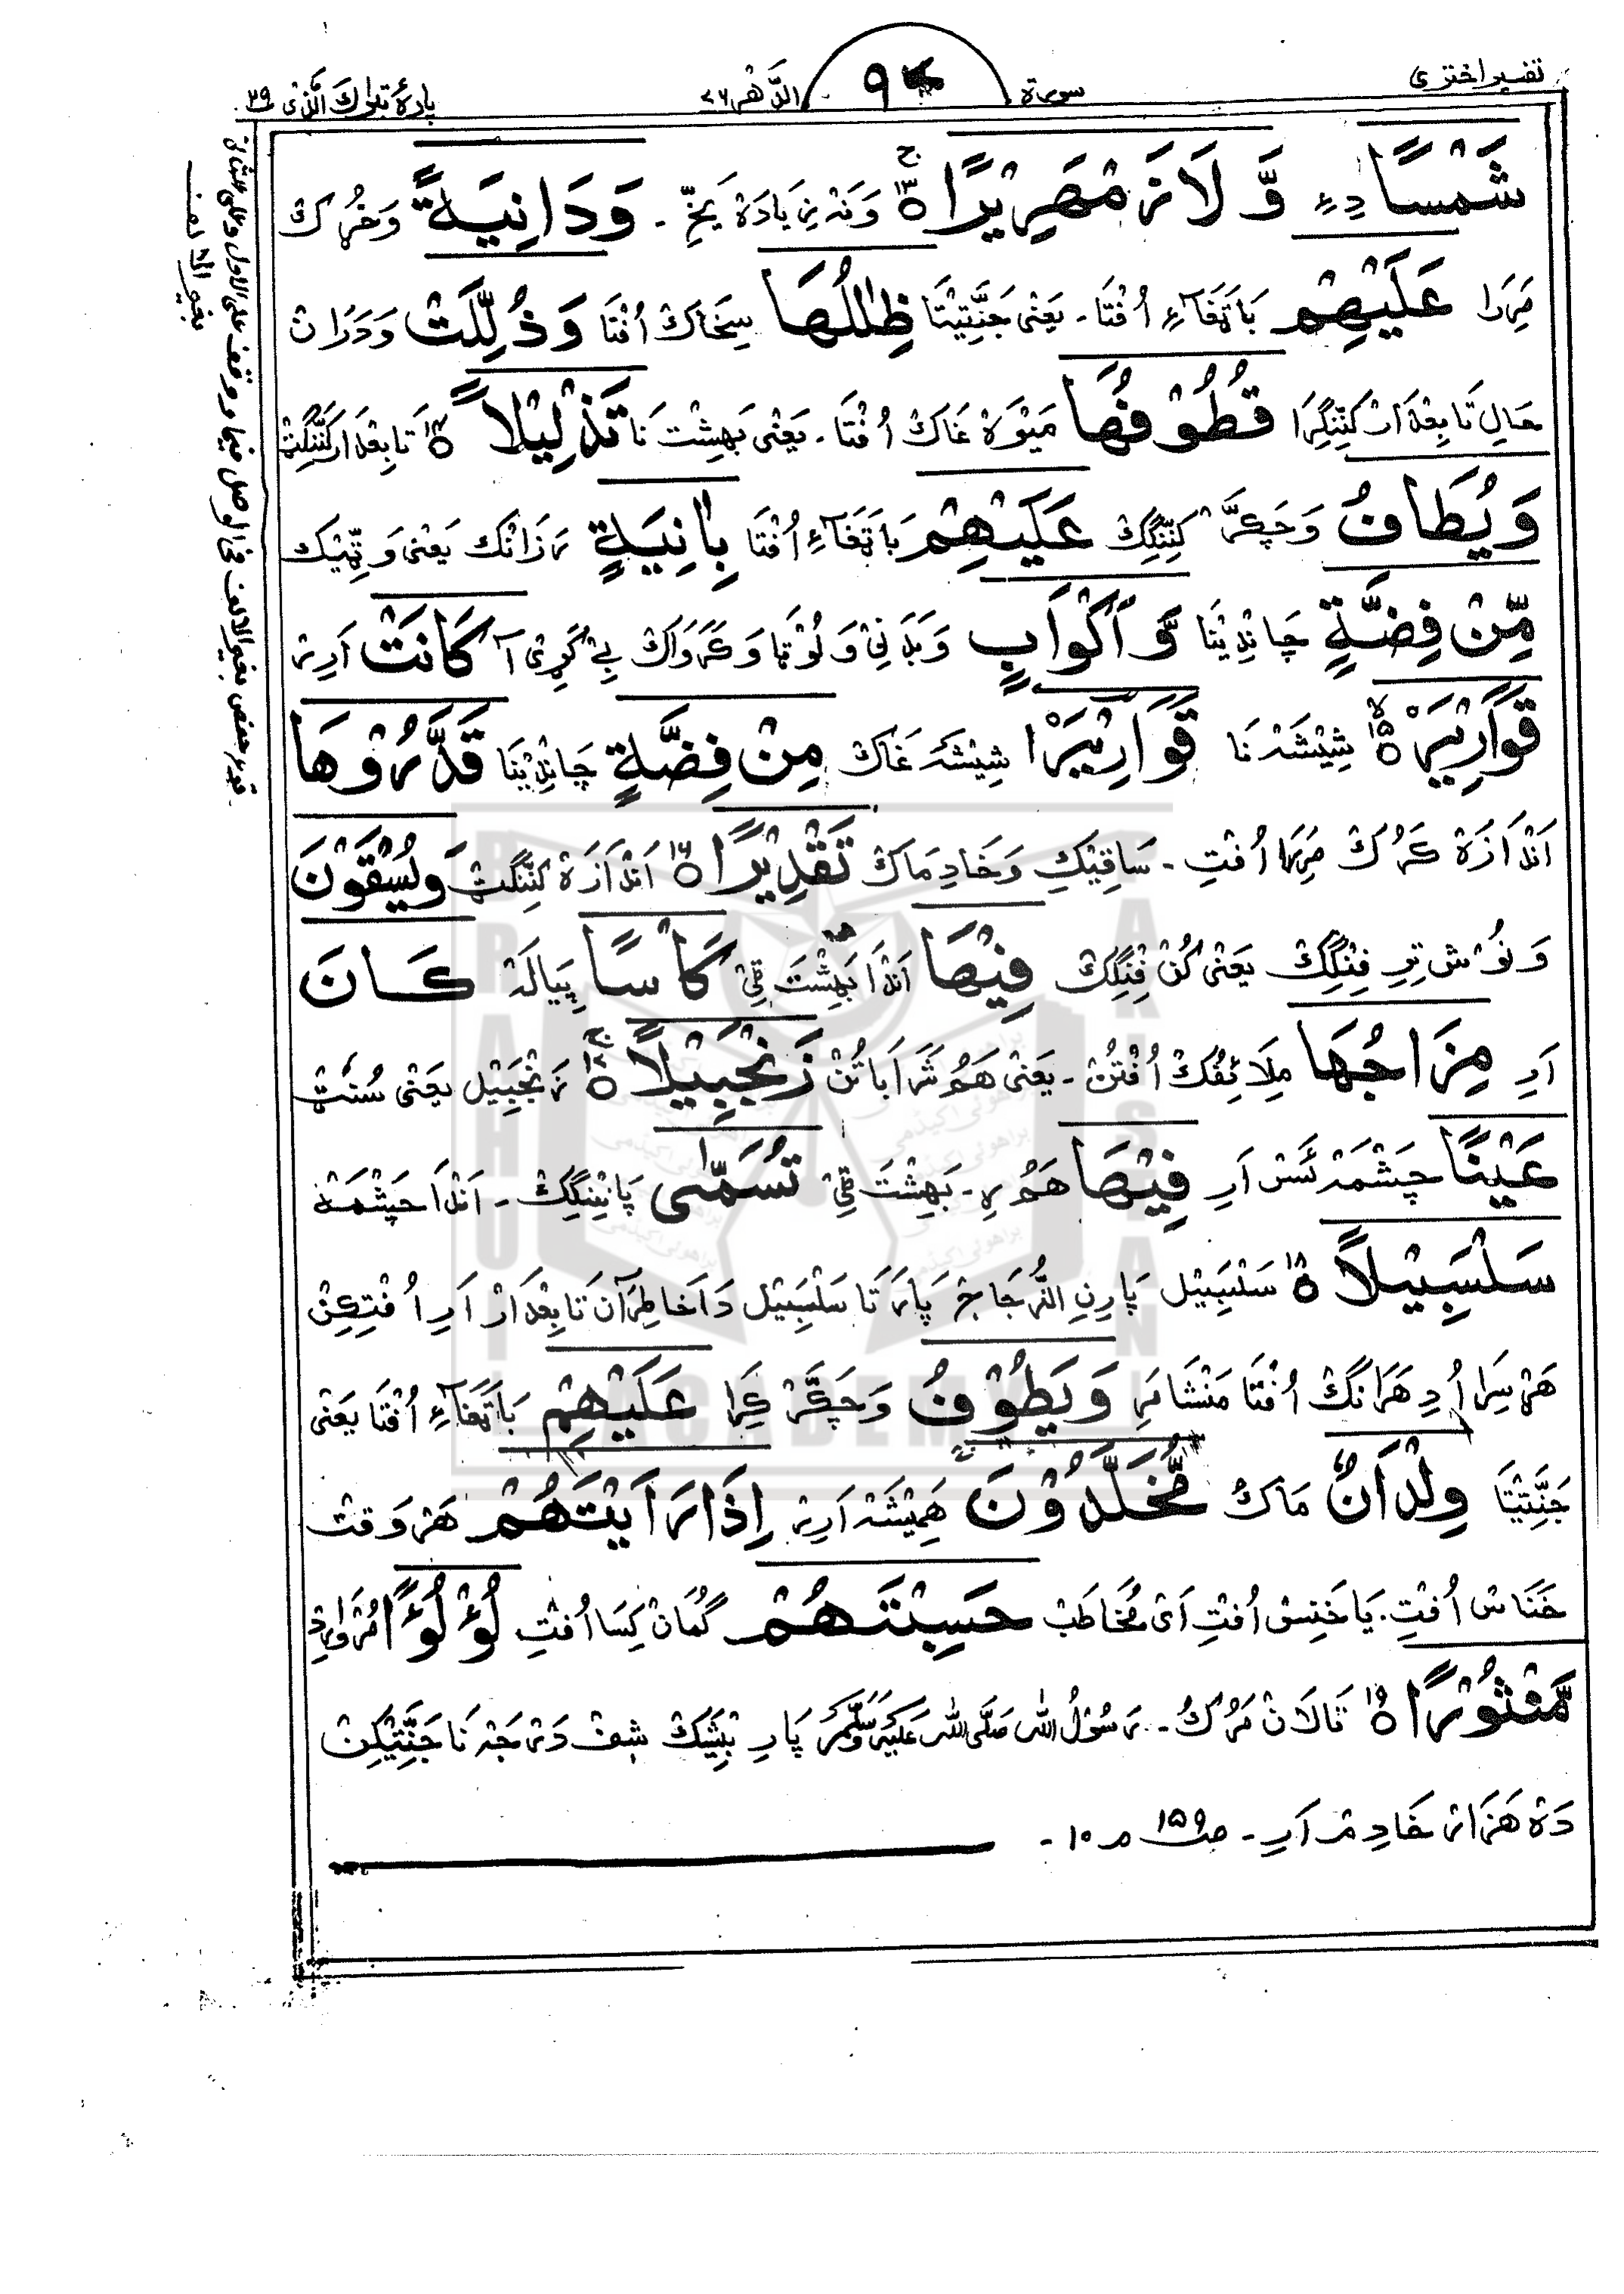 تفسیر اختری
سورة
٩٤
الدَّهْر ٧٦
پارهٔ تبٰرك الَّذی ٢٩
شَمْسًا دِءِ وَّ لَا زَمْهَرِيْرًا ۝١٣ وَنَہ زِیَادَہ یَخِّ ۔ وَدَانِيَةً وَخُڑک
مَرَا عَلَيْهِمْ بَاتَغَاءِ اُفْتَا ۔ یَعْنٰی جَنَّتِیْتَا ظِلٰلُهَا سِخَاک اُفْتَا وَذُلِّلَتْ وَدَرَان
حَالِ تَابِعْدَارْ کَنِّنْگِرَا قُطُوْفُهَا مَیْوَہ غَاک اُفْتَا ۔ یَعْنٰی بَهِشْت نَا تَذْلِيْلًا ۝١٤ تَابِعْدَار کَنِّنْگِتْ
وَيُطَافُ وَچَکَرَّ کَنِّنْگِک عَلَيْهِمْ بَاتَغَاءِ اُفْتَا بِاٰنِيَةٍ رَزَانْک یَعْنٰی وَتِّیْک
مِّنْ فِضَّةٍ چَانْدِیْنَا وَّ اَكْوَابٍ وَبَدْنِی وَ لُوْٹَا وَکَرْوَاک بِے کَڑِی آ كَانَتْ اَرِیْر
قَوَارِيْرَاْ ۝١٥ شِیْشَہ نَا قَوَارِيْرَاْ شِیْشَہ غَاک مِنْ فِضَّةٍ چَانْدِیْنَا قَدَّرُوْهَا
اَنْدَازَہ کَرُک مَرَا اُفْتِ ۔ سَاقِیْک وَخَادِمَاک تَقْدِيْرًا ۝١٦ اَنْدَازَہ کَنِّنْگِتْ وَيُسْقَوْنَ
وَنُوْش تِرِفِنْگِک یَعْنٰی کُن فِنْگِک فِيْهَا اَنْدَا بَهِشْتَ ٹِی كَاْسًا پِیَالَہ كَانَ
اَرِ مِزَاجُهَا مِلَائِفُک اُفْتُن ۔ یَعْنٰی هَمُو شَرَابَاتُن زَنْجَبِيْلًا ۝١٧ زَنْجَبِیْل یَعْنٰی سُنْٹ
عَيْنًا چَشْمَہ ئَسْ اَرِ فِيْهَا هَمُو رِہ ۔ بَهِشْتَ ٹِی تُسَمّٰى پَانِنْگِک ۔ اَنْدَا چَشْمَہ
سَلْسَبِيْلًا ۝١٨ سَلْسَبِیْل پَارِن الزُّجَاج پَارَتَا سَلْسَبِیْل دَاخَاطِرَان تَابِعْدَارْ اَرِ اُفْتِکِن
هَرْ سِرَا اُدِ هَرَانْگ اُفْتَا مَنْشَا مَرِ وَيَطُوْفُ وَچَکَّرْ کَرِا عَلَيْهِمْ بَاتَغَاءِ اُفْتَا یَعْنٰی
جَنَّتِیْتَا وِلْدَانٌ مَاک مُّخَلَّدُوْنَ هَمِیْشَہ اَرِیْر اِذَا رَاَيْتَهُمْ هَرْ وَقت
خَنَاسْ اُفْتِ ۔ یَاخَنِسْ اُفْتِ اَیْ مُخَاطَب حَسِبْتَهُمْ گُمَان کِسَا اُفْتِ لُؤْلُؤًا مُرْوَارِد
مَّنْثُوْرًا ۝١٩ تَالَان مَرُک ۔ رَسُوْلُ اللہ صَلَّی اللہ عَلَیْہِ وَسَلَّمَ پَارِ بِیْشَک شِف دَرَجَہ نَا جَنَّتِیْکِن
دَہ هَزَار خَادِم اَرِ ۔ ص ١٥٩ م ١٠ ۔
BRAHUI ACADEMY PAKISTAN
براهوئی اکیڈمی